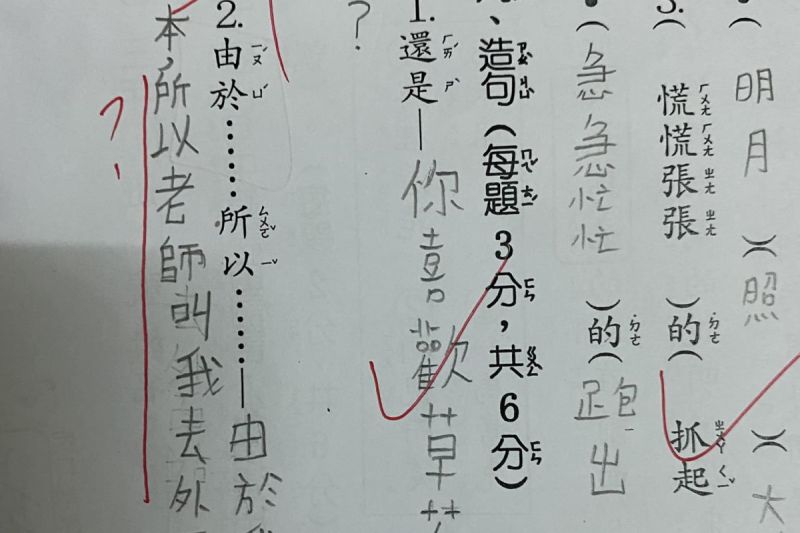 （明月）照（大
3.
慌慌張張（）的（抓起
（急急忙忙）的（跑出
、造句（每題3分，共6分）
1.還是—你喜歡草
？
2.由於……所以……—由於
本，所以老師叫我去外